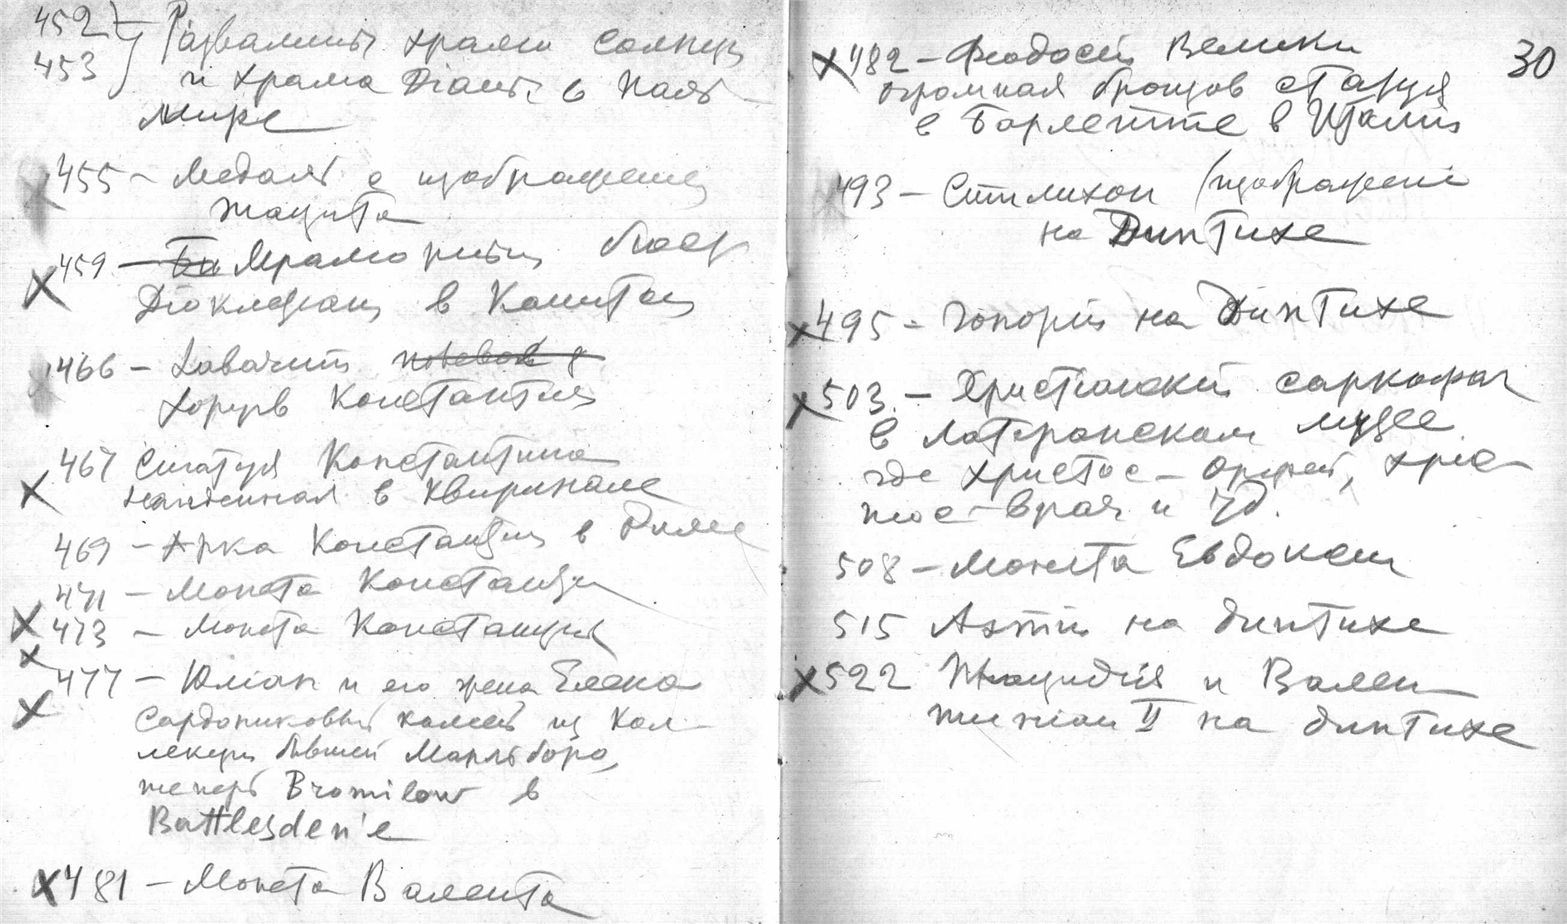 452 } Развалины храма Солнца
453 } и храма Дiаны в Паль-
мире
455 – Медаль с изображением
Тацита
459 – Мраморный бюст
Дiоклецiана в Капитол
466 –
хоругв Константина
467 Статуя Константина
найденная в Квиринале
469 – Арка Константина в Риме
471 – Монета Констанцiи
473 – Монета Констанция
477 – Юлiан и его жена Елена
Сардониковый камей из кол-
лекцiи бывшей Марльборо,
теперь Bromilow в
Battlesden'е
481 – Монета Валента
30
482 – Феодосiй Великий
огромная бронзов статуя
в Барлетте в Италiи
493 – Стилихон (изображенiе
на Диптихе
495 – Гонорiй на Диптихе
503 – Христiанскiй саркофаг
в Латеранском музее
где Христос – Орфей, Хрис-
тос – врач и т.д.
508 – Монета Евдоксии
515 Аэтiй на диптихе
522 Плацидiя и Вален-
тинiан II на диптихе